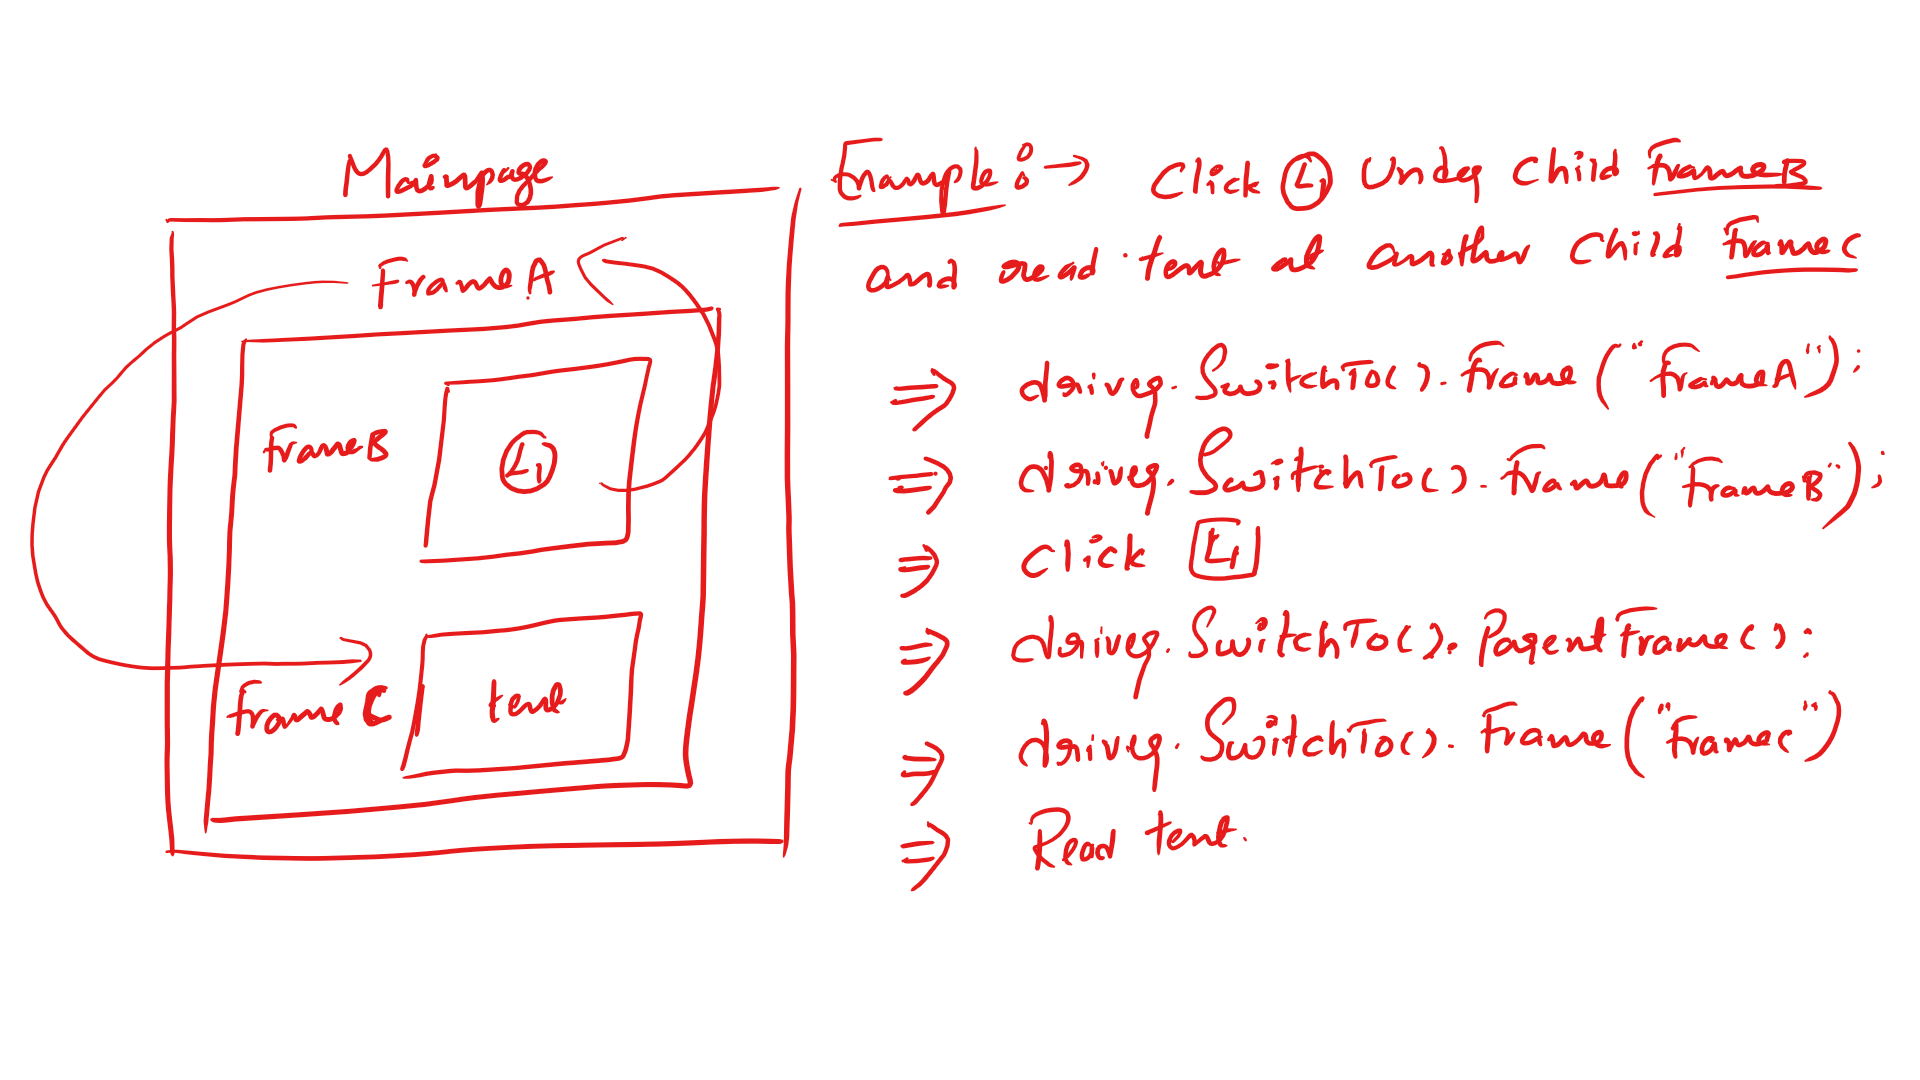 Mainpage
FrameA
frameB
L1
frame C
text
Example :→ Click L1 Under Child frameB
and read text at another Child frameC
⇒ driver.SwitchTo().frame("frameA");
⇒ driver.SwitchTo().frame("frameB");
⇒ click L1
⇒ driver.SwitchTo().ParentFrame();
⇒ driver.SwitchTo().Frame("frameC")
⇒ Read text.